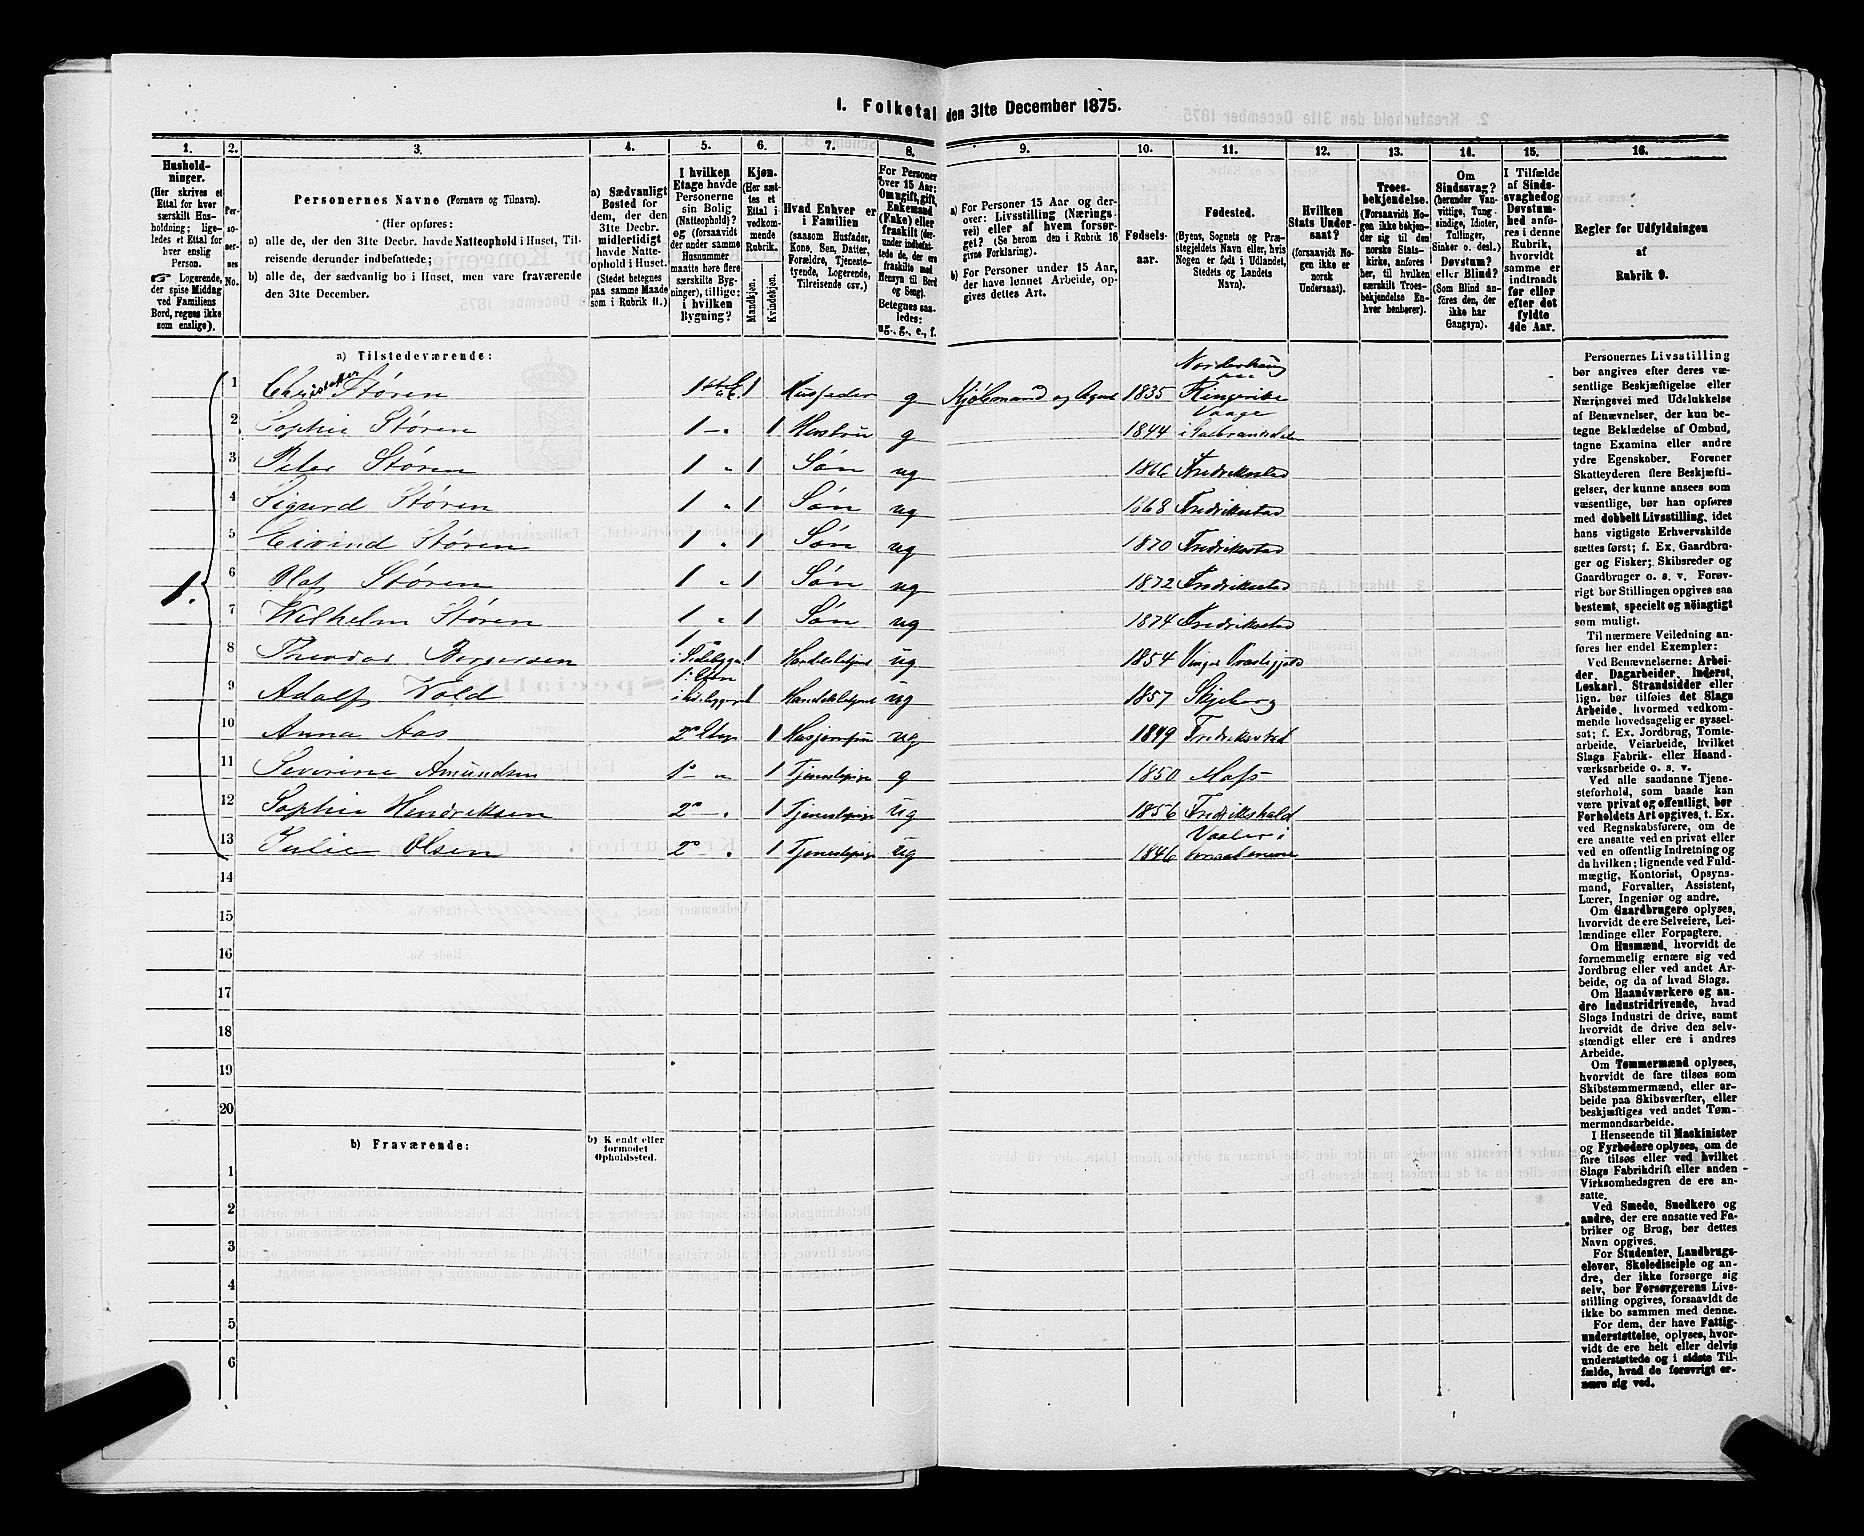 1. Folketal den 31te December 1875.
1. 2. 3. 4. 5. 6. 7. 8. 9. 10. 11. 12. 13. 14. 15. 16.
Hushold-
ninger.
(Her skrives et
Ettal for hver
særskilt Hus-
holdning; lige-
ledes et Ettal for
hver enslig
Person.
☞ Logerende,
der spise Middag
ved Familiens
Bord, regnes ikke
som enslige).
Per-
so-
ner-
nes
No.
Personernes Navne (Fornavn og Tilnavn).
(Her opføres:
a) alle de, der den 31te Decbr. havde Natteophold i Huset, Til-
reisende derunder indbefattede;
b) alle de, der sædvanlig bo i Huset, men vare fraværende
den 31te December.
a) Sædvanligt
Bosted for
dem, der den
31te Decbr.
midlertidigt
havde Natte-
ophold i Huset.
(Stedet betegnes
paa samme Maade
som i Rubrik 11.)
I hvilken
Etage havde
Personerne
sin Bolig
(Natteophold)?
og (forsaavidt
der under samme
Husnummer
maatte høre flere
særskilte Byg-
ninger), tillige:
i hvilken
Bygning?
Kjøn.
(Her sæt-
tes et
Ettal i
vedkom-
mende
Rubrik.
Mandkjøn.
Kvindekjøn.
Hvad Enhver er
i Familien
(saasom Husfader,
Kone, Søn, Datter,
Forældre, Tjeneste-
tyende, Logerende,
Tilreisende (sv.)
For Personer
over 15 Aar:
Om ugift, gift,
Enkemand
(Enke) eller
fraskilt (her-
under indbefat-
tede de, der ere
fraskilte med
Hensyn til Bord
og Seng).
Betegnes saa-
ledes:
ug., g., e., f.
a) For Personer 15 Aar og der-
over: Livsstilling (Nærings-
vei) eller af hvem forsør-
get? (Se herom den i Rubrik 16
givne Forklaring).
b) For Personer under 15 Aar,
der have lønnet Arbeide, op-
gives dettes Art.
Fødsels-
aar.
Fødested.
(Byens, Sognets og Præ-
stegjeldets Navn eller, hvis
Nogen er født i Udlandet,
Stedets og Landets
Navn).
Hvilken
Stats Under-
saat?
(forsaavidt No-
gen ikke er
norsk
Undersaat).
Troes-
bekjendelse.
(Forsaavidt No-
gen ikke bekjen-
der sig til den
norske Stats-
kirke, anføres
her, til hvilken
særskilt Troes-
bekjendelse En-
hver henhører).
Om
Sindssvag?
(herunder Van-
vittige, Tung-
sindige, Idioter,
Tullinger,
Sinker o. desl.)
Døvstum?
eller Blind?
(Som Blind an-
føres den, der
ikke har
Gangsyn).
I Tilfælde
af Sinds-
svaghed og
Døvstum-
hed anfø-
res i denne
Rubrik,
hvorvidt
samme er
indtraadt
før eller
efter det
fyldte
4de Aar.
Regler for Udfyldningen
af
Rubrik 9.
a) Tilstedeværende:
1.
1 Christofer Støren 1 Husfader g Kjøbmand og Agent 1835 Norderhaug paa Ringerike
2 Sophie Støren 1 1 Hustru g 1844 Vaage i Gulbrandsdalen
3 Peter Støren 1 " 1 Søn ug 1866 Fredrikstad
4 Sigurd Støren 1 " 1 Søn ug 1868 Fredrikstad
5 Eivind Støren 1 " 1 Søn ug 1870 Fredrikstad
6 Olaf Støren 1 " 1 Søn ug 1872 Fredrikstad
7 Wilhelm Støren 1 " 1 Søn ug 1874 Fredrikstad
8 Theodor Borgersen 1 1 Handelsbetjent ug 1854 Vinger
9 Adolf Wold 1 Handelsbetjent ug 1857 Skjeberg
10 Anna Aas 2 1 Husjomfru ug 1849 Fredrikstad
11 Severine Amundsen 1 " 1 Tjenestepige g 1850 Moss
12 Sophie Hendriksen 2 " 1 Tjenestepige ug 1856 Fredrikshald
13 Julie Olsen 2 " 1 Tjenestepige ug 1846 Vaaler i
14
15
16
17
18
19
20
b) Fraværende:
b) Kjendt eller
formodet
Opholdssted.
1
2
3
4
5
6
Personernes Livsstilling
bør angives efter deres væ-
sentlige Beskjæftigelse eller
Næringsvei med Udelukkelse
af Benævnelser, der kun be-
tegne Beklædelse af Ombud,
tagne Examina eller andre
ydre Egenskaber. Forener
Skatteyderen flere Beskjæfti-
gelser, der kunne ansees som
væsentlige, bør han opføres
med dobbelt Livsstilling, idet
hans vigtigste Erhvervskilde
sættes først; f. Ex. Gaardbru-
ger og Fisker; Skibsreder og
Gaardbruger o. s. v. Forøv-
rigt bør Stillingen opgives saa
bestemt, specielt og nøiagtigt
som muligt.
Til nærmere Veiledning an-
føres her endel Exempler:
Ved Benævnelserne: Arbei-
der, Dagarbeider, Inderst,
Løskarl, Strandsidder eller
lign. bør tilføies det Slags
Arbeide, hvormed vedkom-
mende hovedsagelig er syssel-
sat; f. Ex. Jordbrug, Tomte-
arbeide, Veiarbeide, hvilket
Slags Fabrik- eller Haand-
værksarbeide o. s. v.
Ved alle saadanne Tjene-
steforhold, som baade kan
være privat og offentligt, bør
Forholdets Art opgives, t. Ex.
ved Regnskabsførere, om de
ere ansatte ved en privat eller
ved en offentlig Indretning og
da hvilken; lignende ved Fuld-
mægtig, Kontorist, Opsyns-
mand, Forvalter, Assistent,
Lærer, Ingeniør og andre.
Om Gaardbrugere oplyses,
hvorvidt de ere Selveiere, Lei-
lændinge eller Forpagtere.
Om Husmænd, hvorvidt de
fornemmelig ernære sig ved
Jordbrug eller ved andet Ar-
beide, og da af hvad Slags.
Om Haandværkere og an-
dre Industridrivende, hvad
Slags Industri de drive, samt
hvorvidt de drive den selv-
stændigt eller ere i andres
Arbeide.
Om Tømmermænd oplyses,
hvorvidt de fare tilsøs som
Skibstømmermænd, eller ar-
beide paa Skibsværfter, eller
beskjæftiges ved andet Tøm-
mermandsarbeide.
I Henseende til Maskinister
og Fyrbødere oplyses, om de
fare tilsøs eller ved hvilket
Slags Fabrikdrift eller anden
Virksomhedsgren de ere an-
satte.
Ved Smede, Snedkere og
andre, der ere ansatte ved Fa-
briker og Brug, bør dettes
Navn opgives.
For Studenter, Landbrugs-
elever, Skoledisciple og an-
dre, der ikke forsørge sig
selv, bør Forsørgerens Livs-
stilling opgives, forsaavidt de
ikke bo sammen med denne.
For dem, der have Fattig-
understøttelse, oplyses, hvor-
vidt de ere helt eller delvis
understøttede og i sidste Til-
fælde, hvad de forøvrigt er-
nære sig ved.